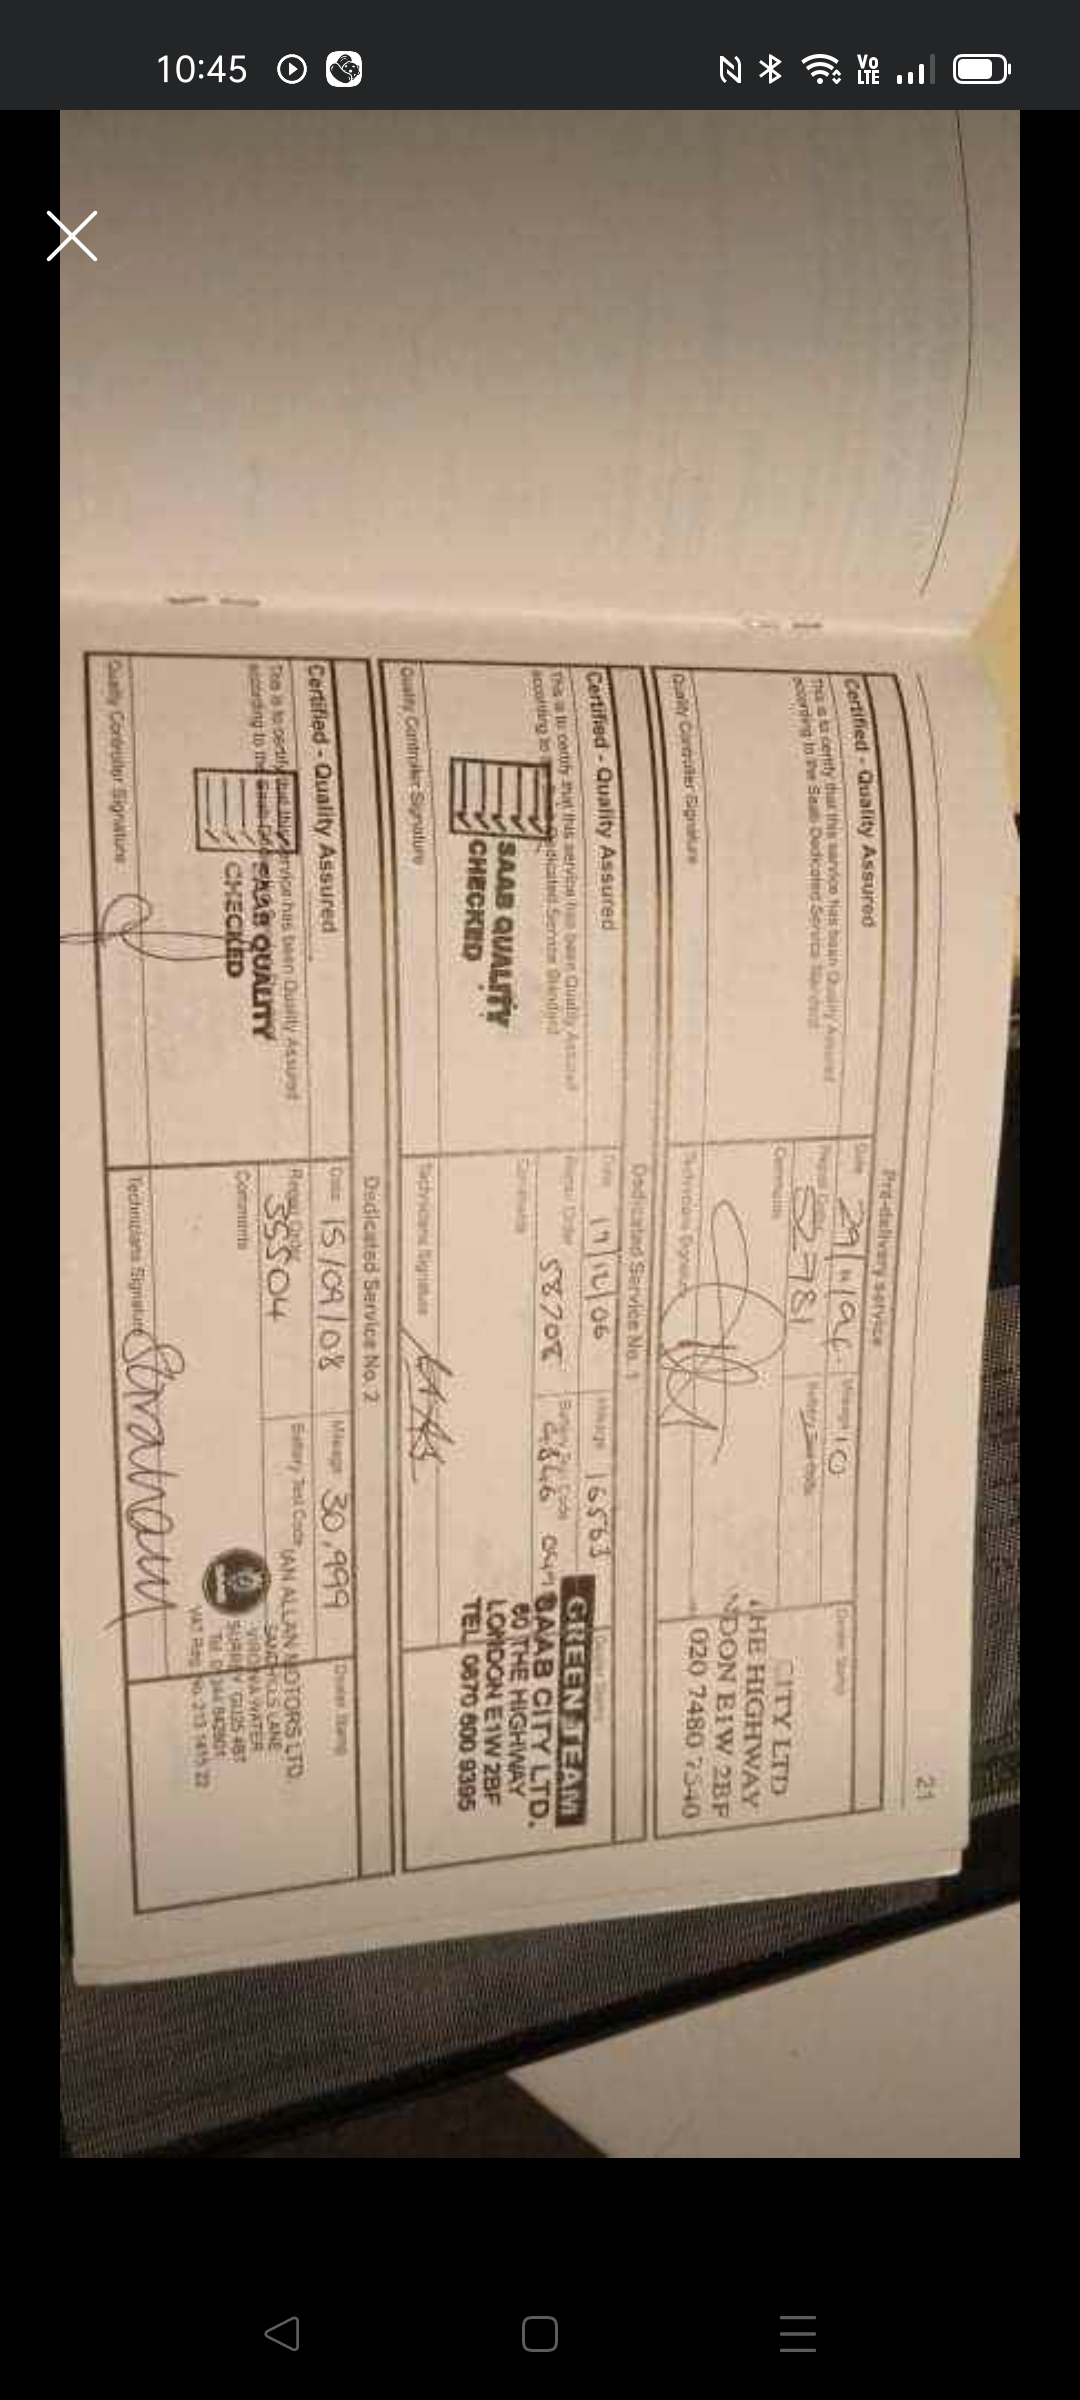 10:45
Vo
LTE
21
Pre-delivery service
Certified - Quality Assured
This is to certify that this service has been Quality Assured
according to the Saab Dedicated Service Standard
Quality Controller Signature
Date 29/ Mileage 10
Repair Order 52781
Comments
Technicians Signature
Dealer Stamp
CITY LTD
THE HIGHWAY
NDON E1W 2BF
020 7480 7540
Dedicated Service No. 1
Certified - Quality Assured
This is to certify that this service has been Quality Assured
according to Dedicated Service Standard
SAAB QUALITY
CHECKED
Quality Controller Signature
Date 19/12/06 Mileage 16563
Repair Order 58708 Safety Test Code
Comments
Technicians Signature
Dealer Stamp
GREEN TEAM
SAAB CITY LTD.
60 THE HIGHWAY
LONDON E1W 2BF
TEL 0870 600 9395
Dedicated Service No. 2
Certified - Quality Assured
This is to certify that this service has been Quality Assured
according to the Saab
SAAB QUALITY
CHECKED
Quality Controller Signature
Date 15/09/08 Mileage 30,999
Repair Order 35504 Safety Test Code
Comments
Technicians Signature
Dealer Stamp
IAN ALLAN MOTORS LTD.
SANDHILLS LANE
VIRGINIA WATER
SURREY GU25 4BT